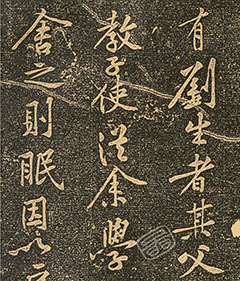 有劉生者其父
教子使從余學
舍之則眠因以